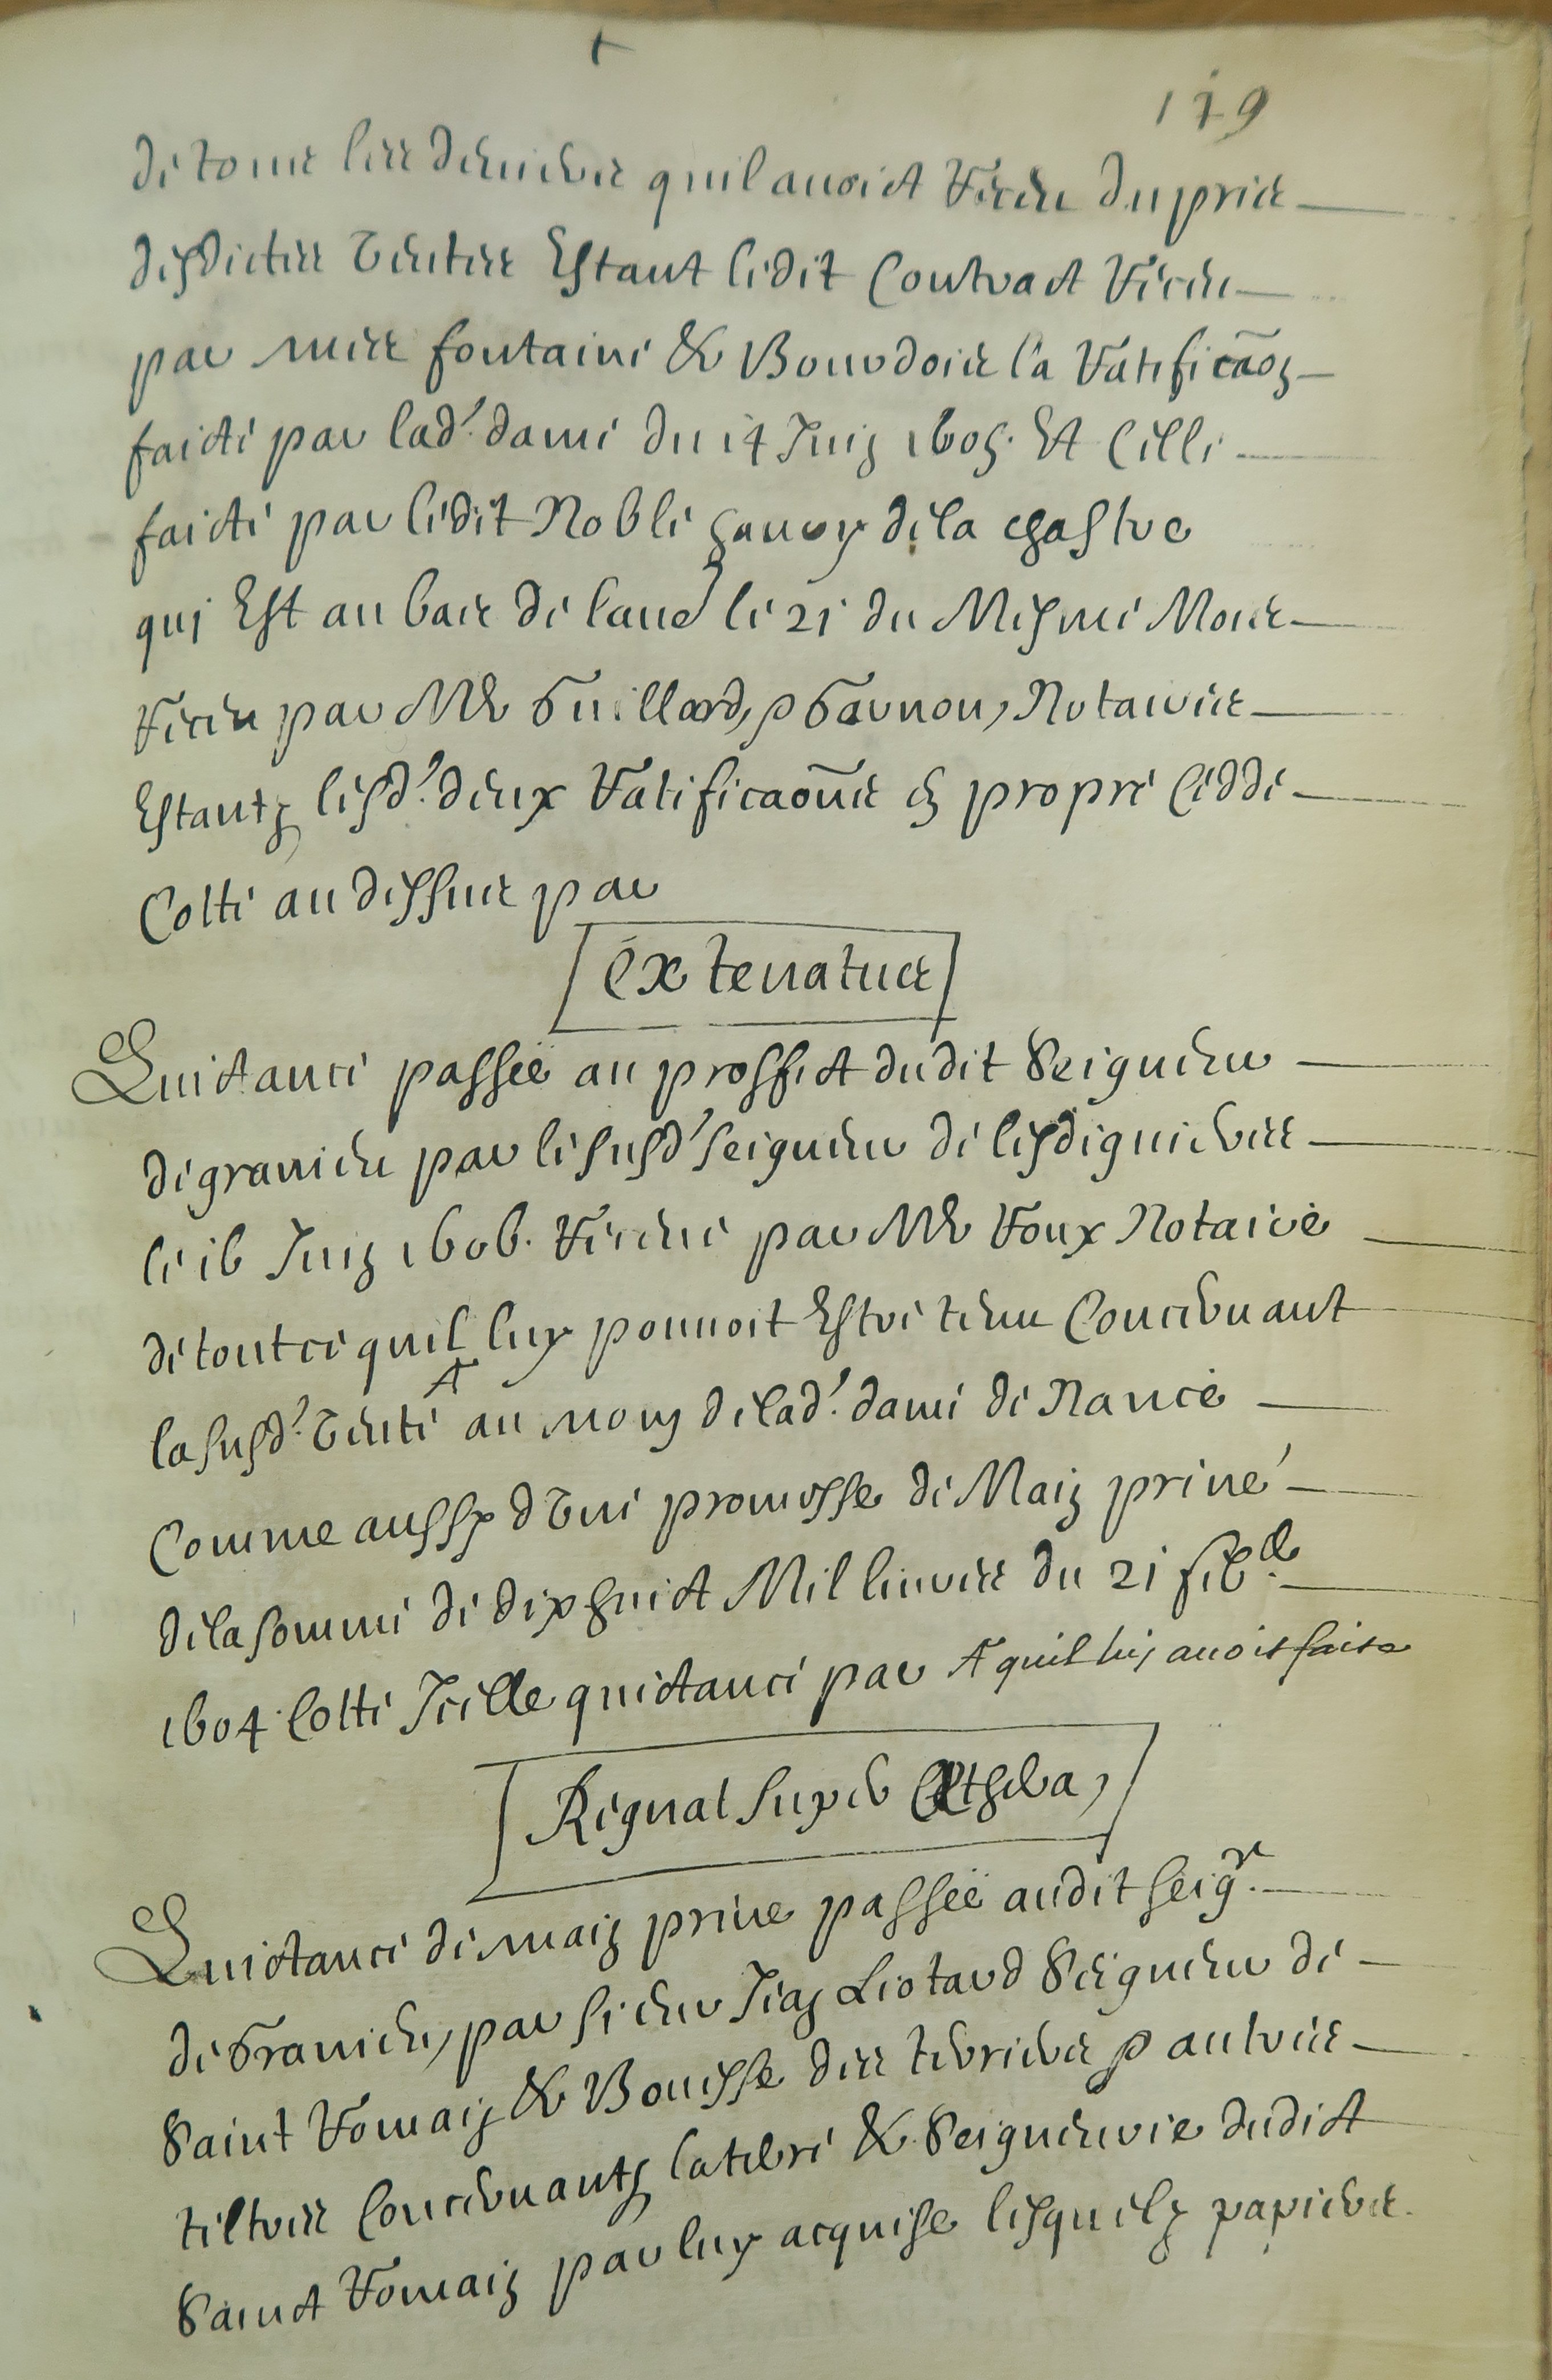 179
de tous les deniers quil auoict Receu du pris
desdictes ventes Estant ledit Contract Receu
par mes fontaine & Bourdois la Ratificaõn
faicte par lad.' dame du 14 Juin 1605. Et Celle
faicte par ledit Noble hanry de la chastre
qui Est au bas de laue le 21 du Mesme Mois
Receu par Me Guillard, p Garnon, Notaires
Estantz lesd.' deux Ratificaõns en propre Cedde
Cotte au dessus par
Ex tenatus
Quictance passeë au proffict dudit Seigneur
de grauieu par le susd' seigneur de lesdiguieres
le 16 Juin 1606. Receue par Me Roux Notaire
de tout ce quil luy pouuoit Estre tenu Concernant
la susd.' vente au nom de lad.' dame de Nance
Comme aussy d vne promesse de Main priue
de la somme de dixhuict Mil liures du 21 feb.
1604 Cotte Jcelle quictance par quil luy auoit faite
Regnat super Æthera,
Quictance de main priue passeë audit seigr.
de Grauieu, par sieur Jean Liotard Seigneur de
Saint Romain & Bouesse des terriers p autres
tiltres Concernantz la terre & Seigneurie dudict
Sainct Romain par luy acquise lesquelz papiers.